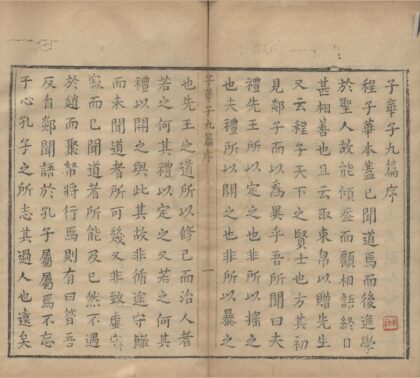 子華子九篇序
程子華本蓋已聞道焉而後進學
於聖人故能傾蓋而顧相語終日
甚相善也且云取束帛以贈先生
又云程子天下之賢士也方其初
見郯子而以為異乎吾所聞曰夫
禮先王所以定之也非所以搖之
也夫禮所以開之也非所以暴之
子華子九篇序 一
也先王之道所以修已而治人者
若之何其禮以定之又若之何其
禮以開之與此其故非循途守轍
而未聞道者所可幾又非致虛守
寂而已聞道者所能及已然不遇
於趙而聚帑將行焉則有曰昔吾
反自郯聞語於孔子屬屬焉不忘
于心孔子之所志其過人也遠矣